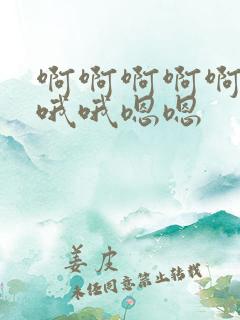 啊啊啊啊啊
哦哦嗯嗯
姜皮
未经同意禁止转载